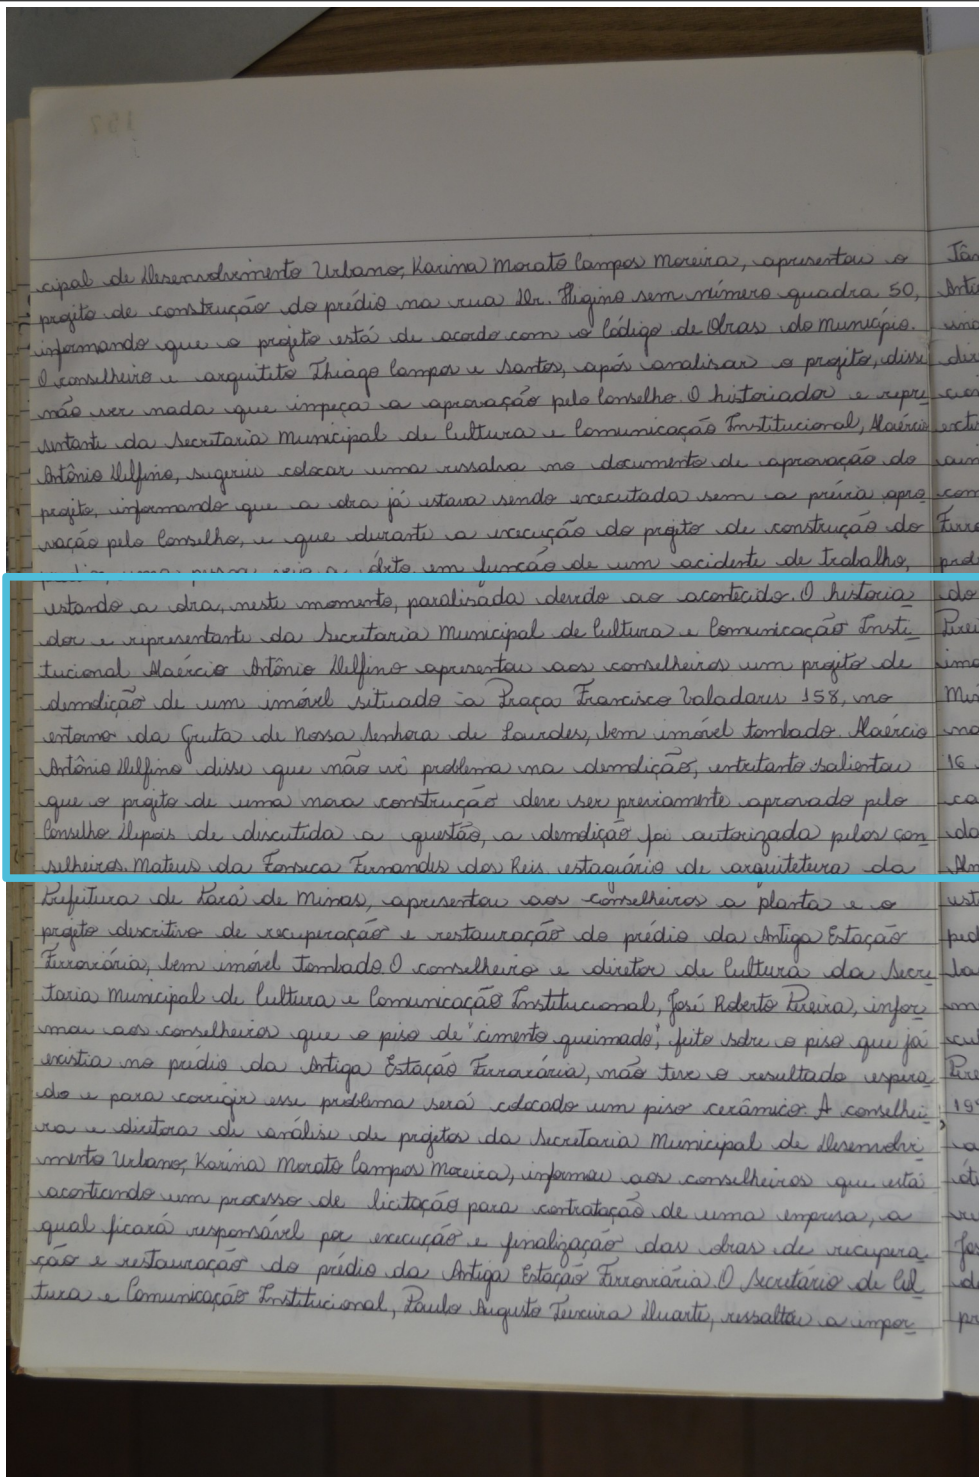 157
cipal de Desenvolvimento Urbano, Karina Morato Campos Moreira, apresentou o
projeto de construção do prédio na rua Dr. Higino sem número quadra 50,
informando que o projeto está de acordo com o Código de Obras do Município.
O conselheiro e arquiteto Thiago Campos e Santos, após analisar o projeto, disse
não ver nada que impeça a aprovação pelo Conselho. O historiador e repre-
sentante da Secretaria Municipal de Cultura e Comunicação Institucional, Alaércio
Antônio Delfino, sugeriu colocar uma ressalva no documento de aprovação do
projeto, informando que a obra já estava sendo executada sem a prévia apro-
vação pelo Conselho, e que durante a execução do projeto de construção do
uma pessoa veio a óbito em função de um acidente de trabalho,
estando a obra, neste momento, paralisada devido ao acontecido. O historia-
dor e representante da Secretaria Municipal de Cultura e Comunicação Insti-
tucional Alaércio Antônio Delfino apresentou aos conselheiros um projeto de
demolição de um imóvel situado à Praça Francisco Valadares 158, no
entorno da Gruta de Nossa Senhora de Lourdes, bem imóvel tombado. Alaércio
Antônio Delfino disse que não vê problema na demolição, entretanto salientou
que o projeto de uma nova construção deve ser previamente aprovado pelo
Conselho. Depois de discutida a questão, a demolição foi autorizada pelos con-
selheiros. Mateus da Fonseca Fernandes dos Reis, estagiário de arquitetura da
Prefeitura de Pará de Minas, apresentou aos conselheiros a planta e o
projeto descritivo de recuperação e restauração do prédio da Antiga Estação
Ferroviária, bem imóvel tombado. O conselheiro e diretor de Cultura da Secre-
taria Municipal de Cultura e Comunicação Institucional, José Roberto Pereira, infor-
mou aos conselheiros que o piso de "cimento queimado", feito sobre o piso que já
existia no prédio da Antiga Estação Ferroviária, não teve o resultado espera-
do e para corrigir esse problema será colocado um piso cerâmico. A conselhei-
ra e diretora de análise de projetos da Secretaria Municipal de Desenvolvi-
mento Urbano, Karina Morato Campos Moreira, informou aos conselheiros que está
acontecendo um processo de licitação para contratação de uma empresa, a
qual ficará responsável por execução e finalização das obras de recupera-
ção e restauração do prédio da Antiga Estação Ferroviária. O Secretário de Cul-
tura e Comunicação Institucional, Paulo Augusto Teixeira Duarte, ressaltou a impor-